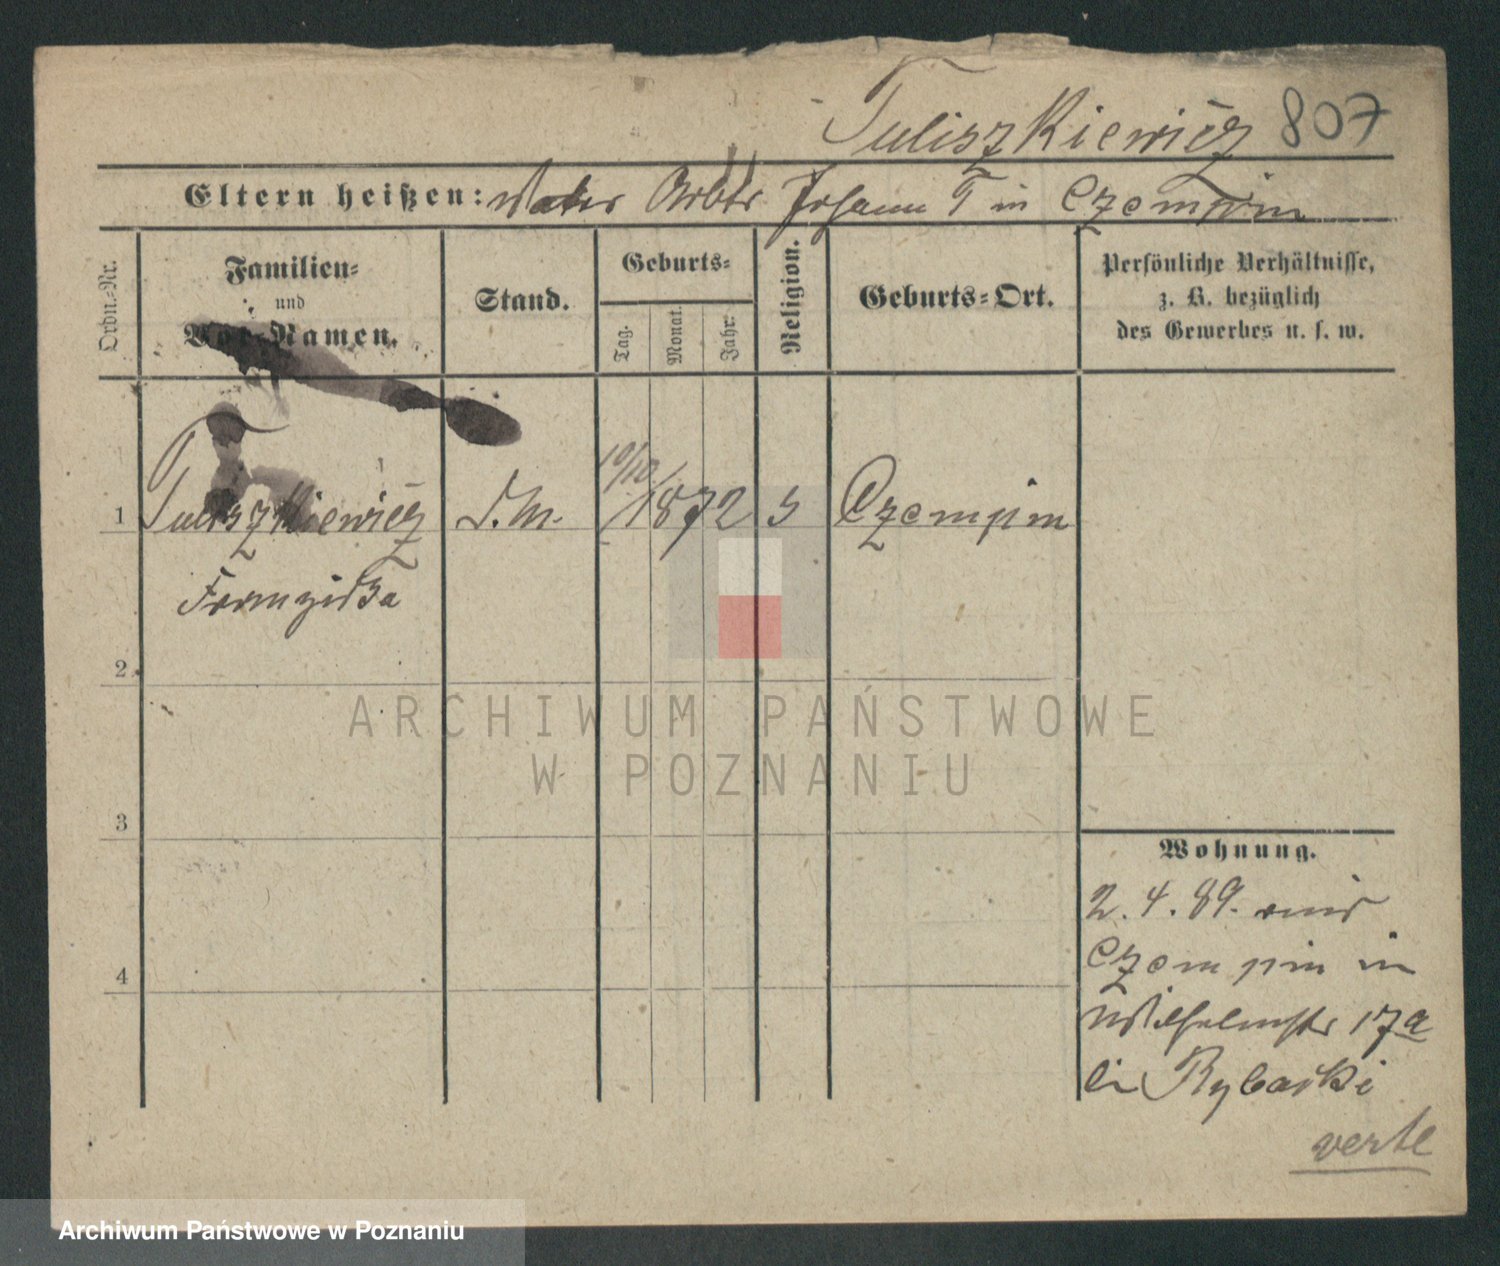 Tuliszkiewicz 807
Eltern heißen: Vater Arbtr Johann T in Czempin
Ordn.-Nr.
Familien-
und
Vor-Namen.
Stand.
Geburts-
Tag.
Monat.
Jahr.
Religion.
Geburts-Ort.
Persönliche Verhältnisse,
z. B. bezüglich
des Gewerbes u. s. w.
1 Tuliszkiewicz D.M. 10/10 1872 Czempin
Franziska
2
3
4
Wohnung.
2.4.89. aus
Czempin in
Wilhelmstr 17a
bei Rybacki
verte
ARCHIWUM PAŃSTWOWE
W POZNANIU
Archiwum Państwowe w Poznaniu